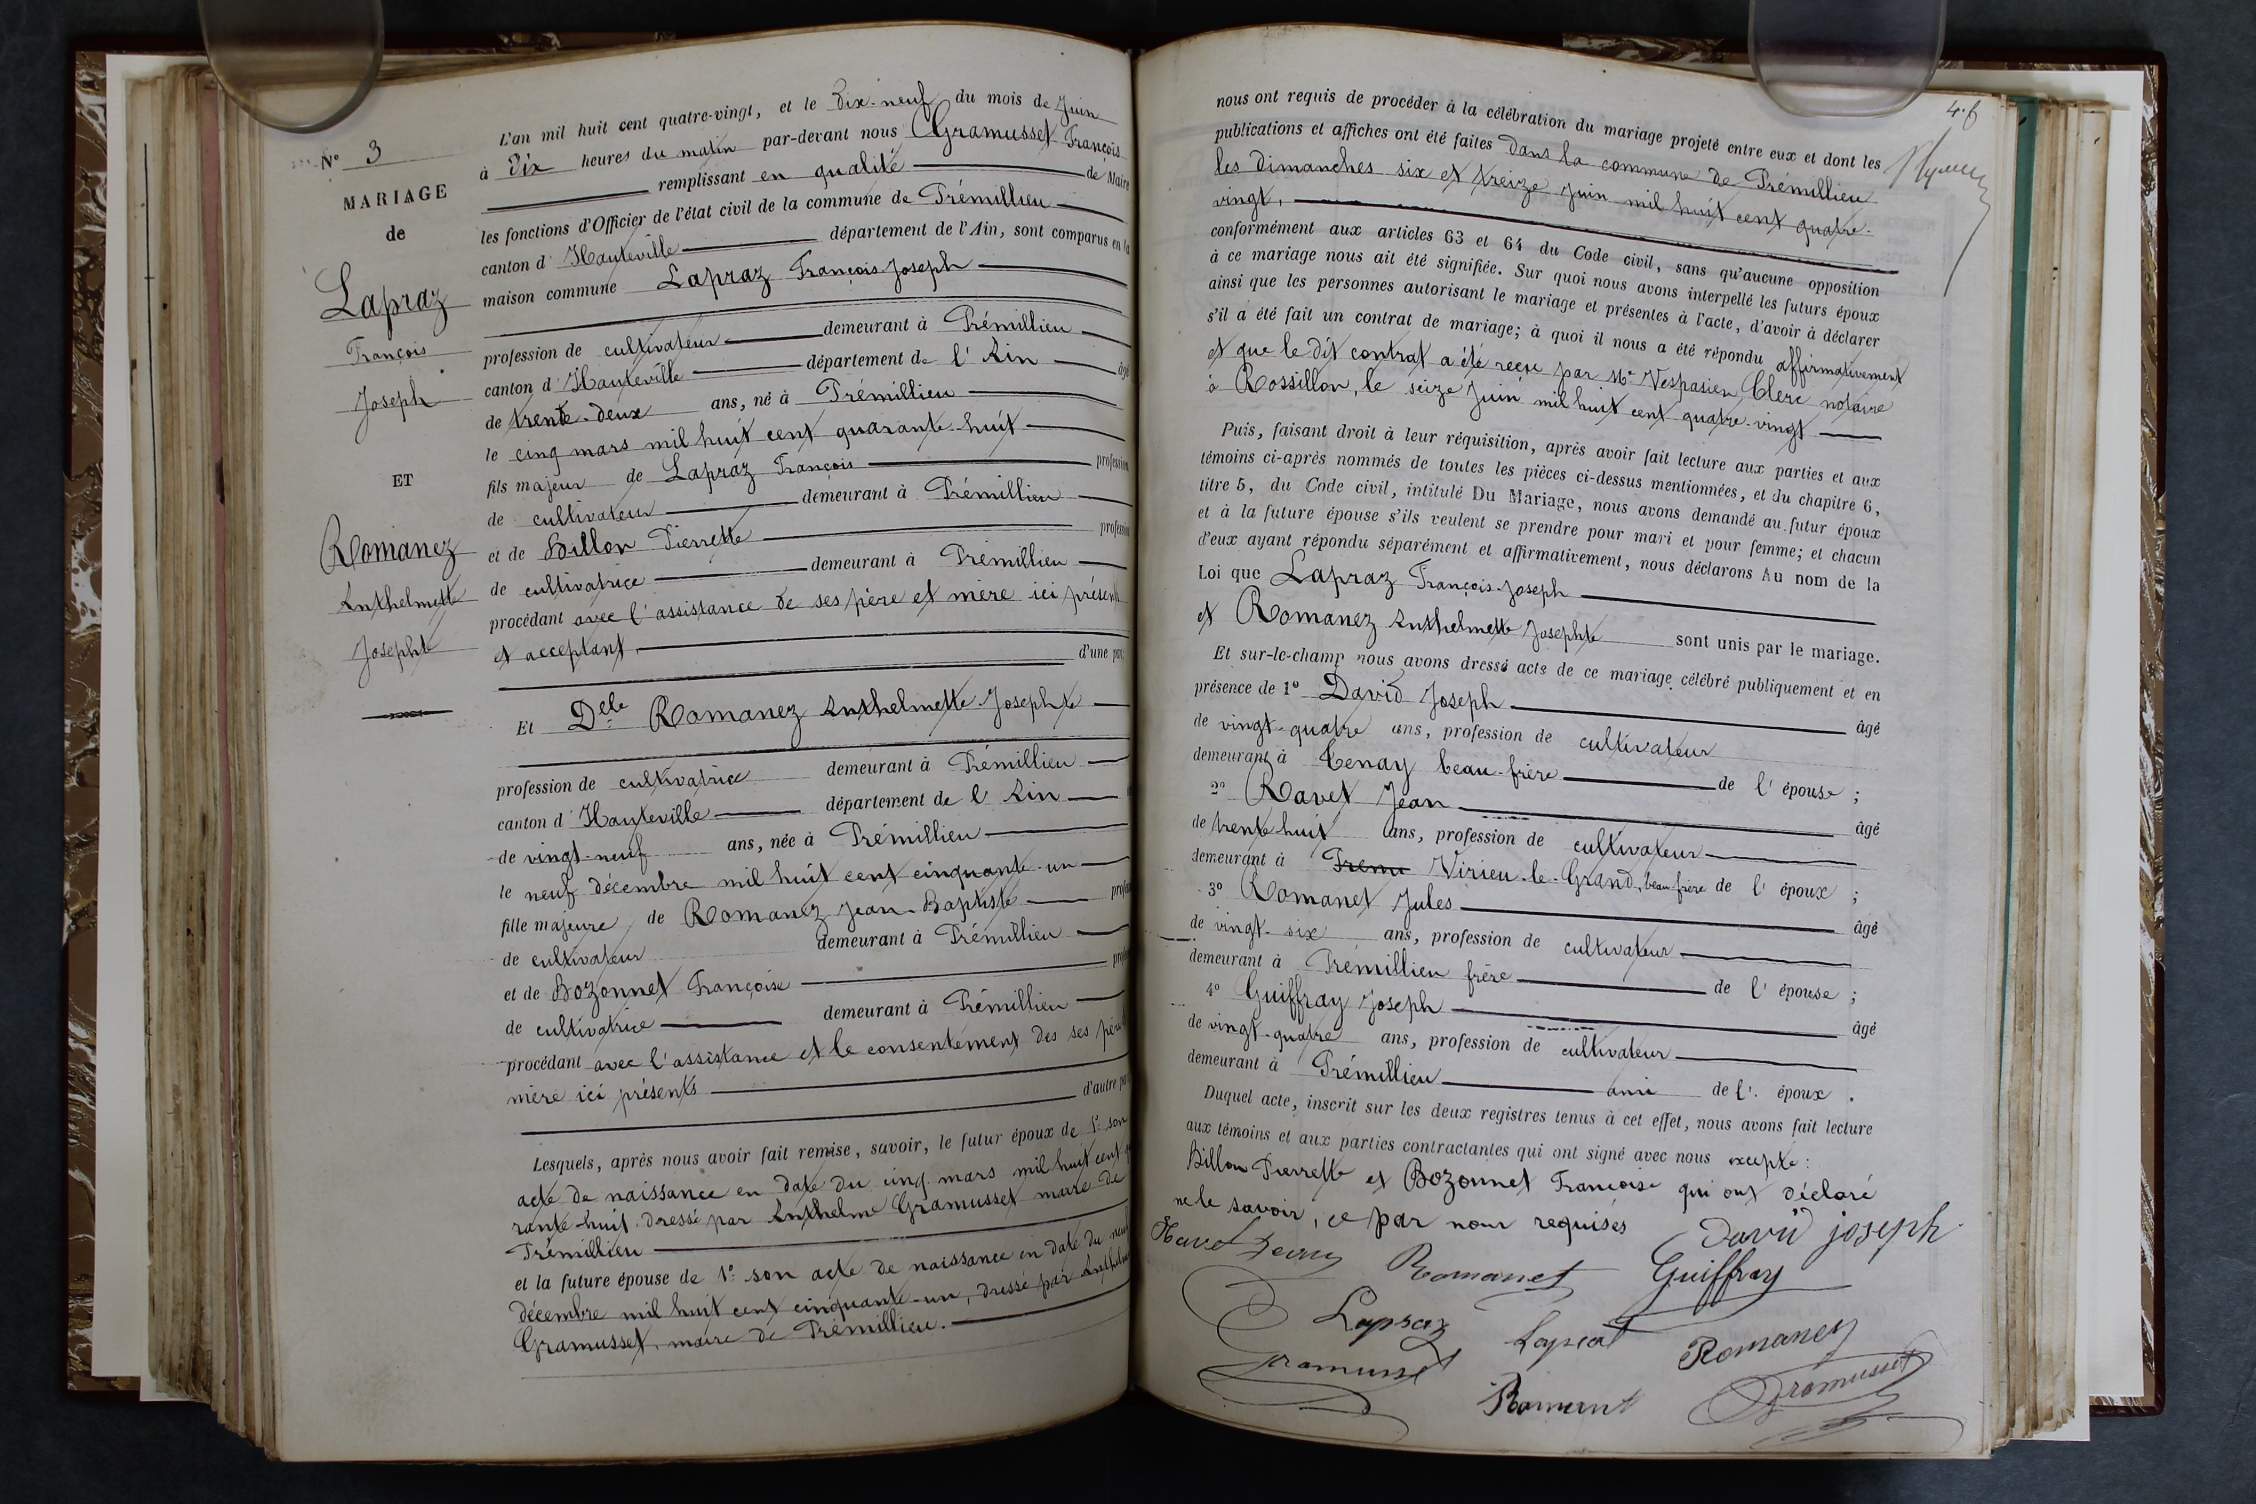 N° 3
MARIAGE
de
Lapraz
François
Joseph
ET
Romanez
Anthelmette
Josephte
L'an mil huit cent quatre-vingt, et le Dix-neuf du mois de Juin
à Dix heures du matin par-devant nous Gramusset François
remplissant en qualité de Maire
les fonctions d'Officier de l'état civil de la commune de Prémillieu
canton d'Hauteville département de l'Ain, sont comparus en la
maison commune Lapraz François Joseph
profession de cultivateur demeurant à Prémillieu
canton d'Hauteville département de l'Ain âgé
de trente-deux ans, né à Prémillieu
le cinq mars mil huit cent quarante-huit
fils majeur de Lapraz François profession
de cultivateur demeurant à Prémillieu
et de Billon Pierrette profession
de cultivatrice demeurant à Prémillieu
procédant avec l'assistance de ses père et mère ici présents
et acceptant,
d'une part
Et Delle Romanez Anthelmette Josephte
profession de cultivatrice demeurant à Prémillieu
canton d'Hauteville département de l'Ain
de vingt-neuf ans, née à Prémillieu
le neuf décembre mil huit cent cinquante-un
fille majeure de Romanez Jean-Baptiste profes
de cultivateur demeurant à Prémillieu
et de Bozonnet Françoise profes
de cultivatrice demeurant à Prémillieu
procédant avec l'assistance et le consentement des ses père
mère ici présents
d'autre part
Lesquels, après nous avoir fait remise, savoir, le futur époux de 1° son
acte de naissance en date du cinq mars mil huit cent qua
rante-huit dressé par Anthelme Gramusset maire de
Prémillieu
et la future épouse de 1° son acte de naissance en date du neuf
décembre mil huit cent cinquante-un, dressé par Anthelme
Gramusset, maire de Prémillieu.
46
nous ont requis de procéder à la célébration du mariage projeté entre eux et dont les
publications et affiches ont été faites dans la commune de Prémillieu
les dimanches six et treize juin mil huit cent quatre-
vingt,
conformément aux articles 63 et 64 du Code civil, sans qu'aucune opposition
à ce mariage nous ait été signifiée. Sur quoi nous avons interpellé les futurs époux
ainsi que les personnes autorisant le mariage et présentes à l'acte, d'avoir à déclarer
s'il a été fait un contrat de mariage; à quoi il nous a été répondu affirmativement
et que le dit contrat a été reçu par Me Vespasien Clerc notaire
à Rossillon, le seize Juin mil huit cent quatre-vingt
Puis, faisant droit à leur réquisition, après avoir fait lecture aux parties et aux
témoins ci-après nommés de toutes les pièces ci-dessus mentionnées, et du chapitre 6,
titre 5, du Code civil, intitulé Du Mariage, nous avons demandé au futur époux
et à la future épouse s'ils veulent se prendre pour mari et pour femme; et chacun
d'eux ayant répondu séparément et affirmativement, nous déclarons Au nom de la
Loi que Lapraz François-Joseph
et Romanez Anthelmette Josephte sont unis par le mariage.
Et sur-le-champ nous avons dressé acte de ce mariage célébré publiquement et en
présence de 1° David Joseph âgé
de vingt-quatre ans, profession de cultivateur
demeurant à Tenay beau-frère de l'épouse;
2° Ravet Jean âgé
de trente huit ans, profession de cultivateur
demeurant à Prémi Virieu-le-Grand, beau frère de l'époux;
3° Romanet Jules âgé
de vingt-six ans, profession de cultivateur
demeurant à Prémillieu frère de l'épouse;
4° Guiffray Joseph âgé
de vingt-quatre ans, profession de cultivateur
demeurant à Prémillieu ami de l'époux.
Duquel acte, inscrit sur les deux registres tenus à cet effet, nous avons fait lecture
aux témoins et aux parties contractantes qui ont signé avec nous excepté:
Billon Pierrette et Bozonnet Françoise qui ont déclaré
ne le savoir, ce par nous requises
David joseph
Ravet Jean Romanet Guiffray
Lapraz Lapraz Romanez
Gramusset Romanet Gramusset